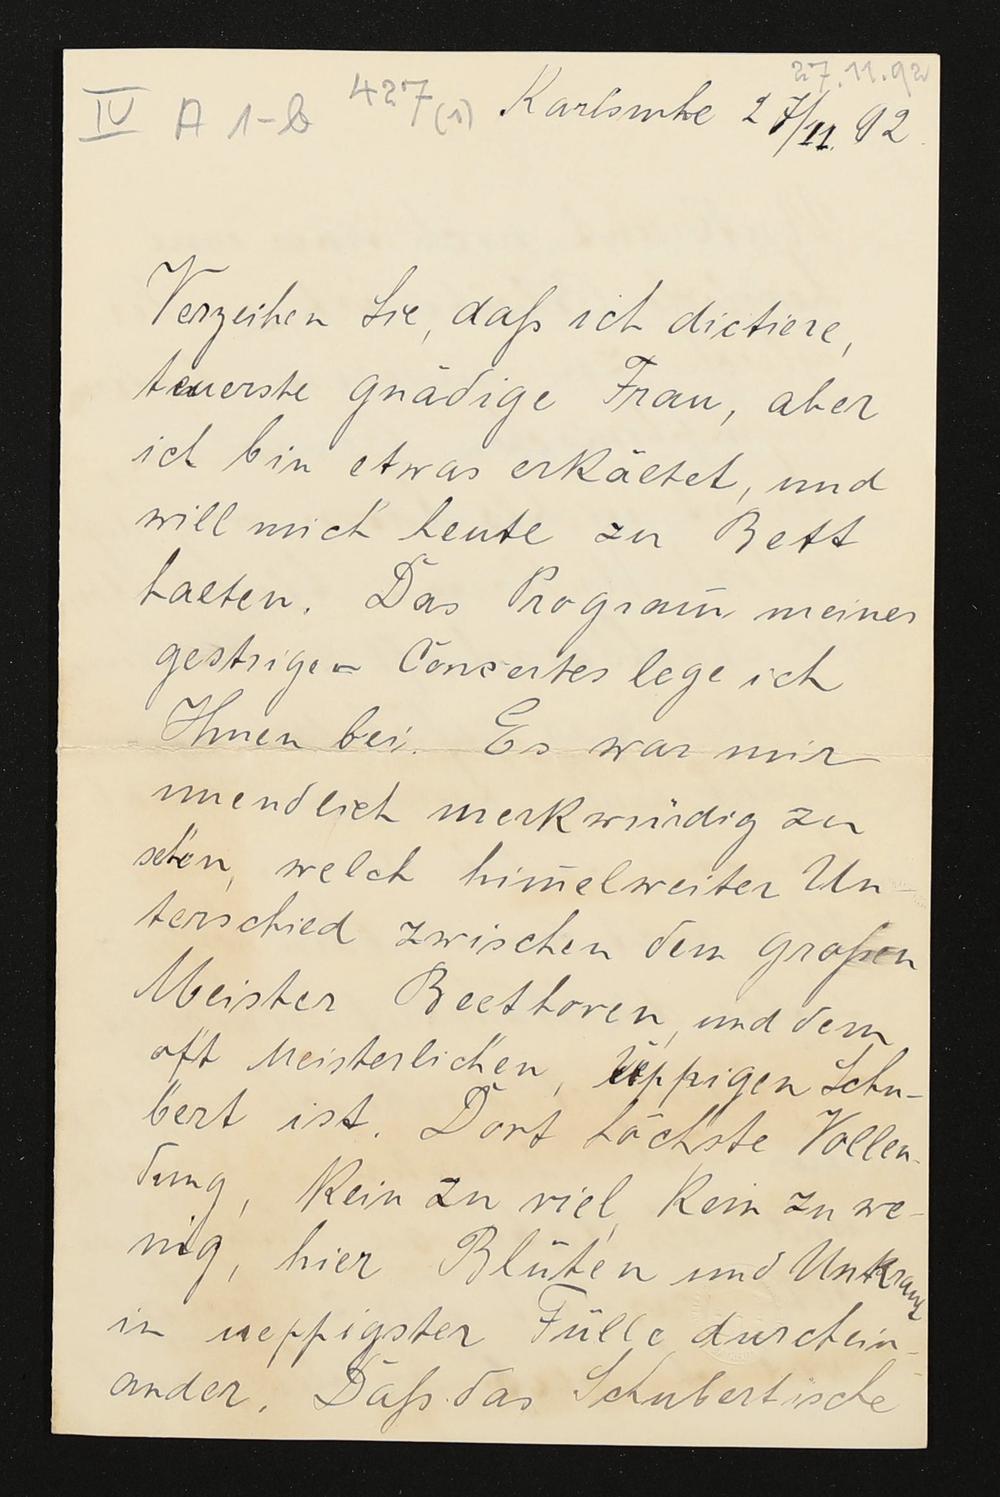 27.11.92
IV A 1-b 427(1) Karlsruhe 27/11. 92
Verzeihen Sie, daß ich dictiere,
teuerste gnädige Frau, aber
ich bin etwas erkältet, und
will mich heute zu Bett
halten. Das Program̄ meines
gestrigen Concertes lege ich
Ihnen bei. Es war mir
unendlich merkwürdig zu
sehen, welch him̄elweiter Un-
terschied zwischen dem großen
Meister Beethoven, und dem
oft meisterlichen, üppigen Schu-
bert ist. Dort höchste Vollen-
dung, kein zu viel, kein zu we-
nig, hier Blüten und Unkraut
in ueppigster Fülle durchein-
ander. Daß das Schubertische